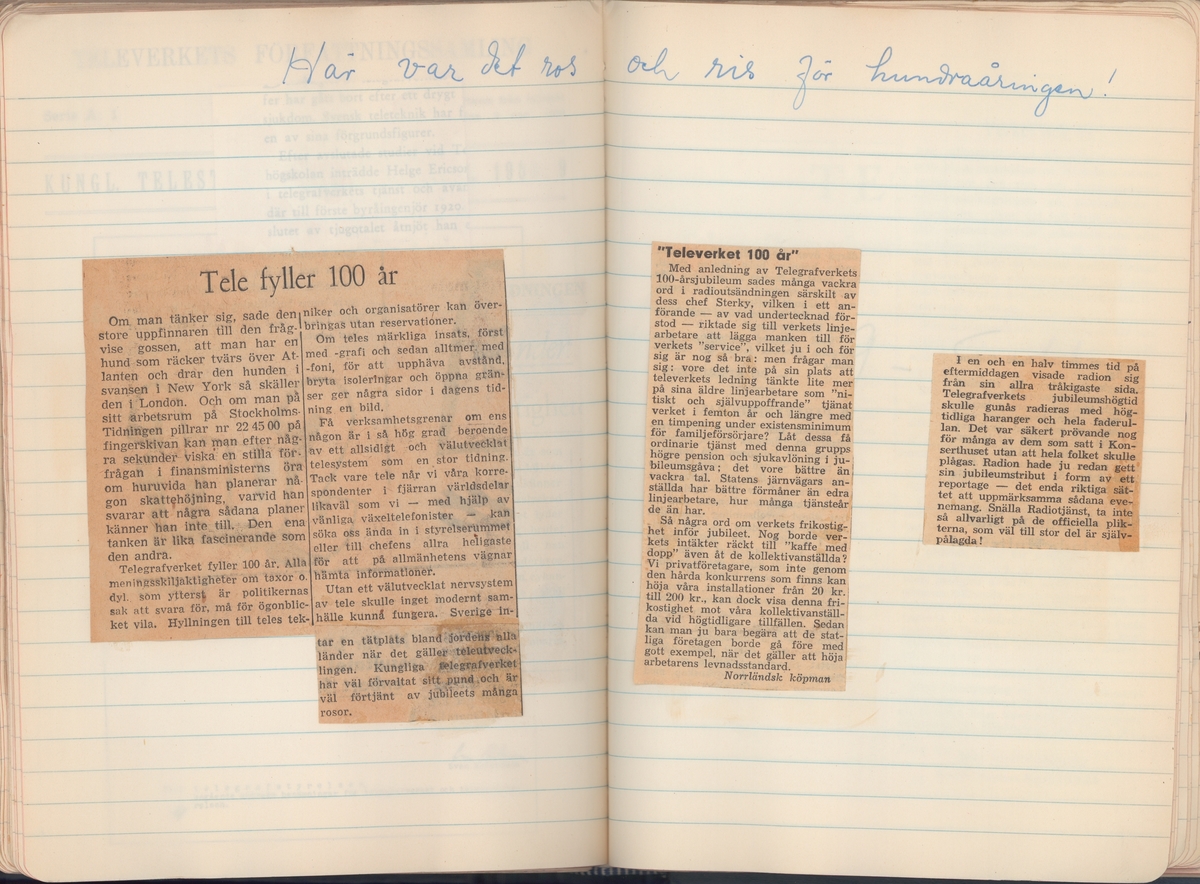 Här var det ros och ris för hundraåringen!
Tele fyller 100 år
Om man tänker sig, sade den
store uppfinnaren till den fråg-
vise gossen, att man har en
hund som räcker tvärs över At-
lanten och drar den hunden i
svansen i New York så skäller
den i London. Och om man på
sitt arbetsrum på Stockholms-
Tidningen pillrar nr 22 45 00 på
fingerskivan kan man efter någ-
ra sekunder viska en stilla för-
frågan i finansministerns öra
om huruvida han planerar nå-
gon skattehöjning, varvid han
svarar att några sådana planer
känner han inte till. Den ena
tanken är lika fascinerande som
den andra.
Telegrafverket fyller 100 år. Alla
meningsskiljaktigheter om taxor o.
dyl. som ytterst är politikernas
sak att svara för, må för ögonblic-
ket vila. Hyllningen till teles tek-
niker och organisatörer kan över-
bringas utan reservationer.
Om teles märkliga insats, först
med -grafi och sedan alltmer med
-foni, för att upphäva avstånd,
bryta isoleringar och öppna grän-
ser ger några sidor i dagens tid-
ning en bild.
Få verksamhetsgrenar om ens
någon är i så hög grad beroende
av ett allsidigt och välutvecklat
telesystem som en stor tidning.
Tack vare tele når vi våra korre-
spondenter i fjärran världsdelar
likaväl som vi — med hjälp av
vänliga växeltelefonister — kan
söka oss ända in i styrelserummet
eller till chefens allra heligaste
för att på allmänhetens vägnar
hämta informationer.
Utan ett välutvecklat nervsystem
av tele skulle inget modernt sam-
hälle kunna fungera. Sverige in-
tar en tätplats bland jordens alla
länder när det gäller teleutveck-
lingen. Kungliga telegrafverket
har väl förvaltat sitt pund och är
väl förtjänt av jubileets många
rosor.
"Televerket 100 år"
Med anledning av Telegrafverkets
100-årsjubileum sades många vackra
ord i radioutsändningen särskilt av
dess chef Sterky, vilken i ett an-
förande — av vad undertecknad för-
stod — riktade sig till verkets linje-
arbetare att lägga manken till för
verkets "service", vilket ju i och för
sig är nog så bra: men frågar man
sig: vore det inte på sin plats att
televerkets ledning tänkte lite mer
på sina äldre linjearbetare som "ni-
tiskt och självuppoffrande" tjänat
verket i femton år och längre med
en timpening under existensminimum
för familjeförsörjare? Låt dessa få
ordinarie tjänst med denna grupps
högre pension och sjukavlöning i ju-
bileumsgåva; det vore bättre än
vackra tal. Statens järnvägars an-
ställda har bättre förmåner än edra
linjearbetare, hur många tjänsteår
de än har.
Så några ord om verkets frikostig-
het inför jubileet. Nog borde ver-
kets intäkter räckt till "kaffe med
dopp" även åt de kollektivanställda?
Vi privatföretagare, som inte genom
den hårda konkurrens som finns kan
höja våra installationer från 20 kr.
till 200 kr., kan dock visa denna fri-
kostighet mot våra kollektivanställ-
da vid högtidligare tillfällen. Sedan
kan man ju bara begära att de stat-
liga företagen borde gå före med
gott exempel, när det gäller att höja
arbetarens levnadsstandard.
Norrländsk köpman
I en och en halv timmes tid på
eftermiddagen visade radion sig
från sin allra tråkigaste sida.
Telegrafverkets jubileumshögtid
skulle gunås radieras med hög-
tidliga haranger och hela faderul-
lan. Det var säkert prövande nog
för många av dem som satt i Kon-
serthuset utan att hela folket skulle
plågas. Radion hade ju redan gett
sin jubileumstribut i form av ett
reportage — det enda riktiga sät-
tet att uppmärksamma sådana eve-
nemang. Snälla Radiotjänst, ta inte
så allvarligt på de officiella plik-
terna, som väl till stor del är själv-
pålagda!